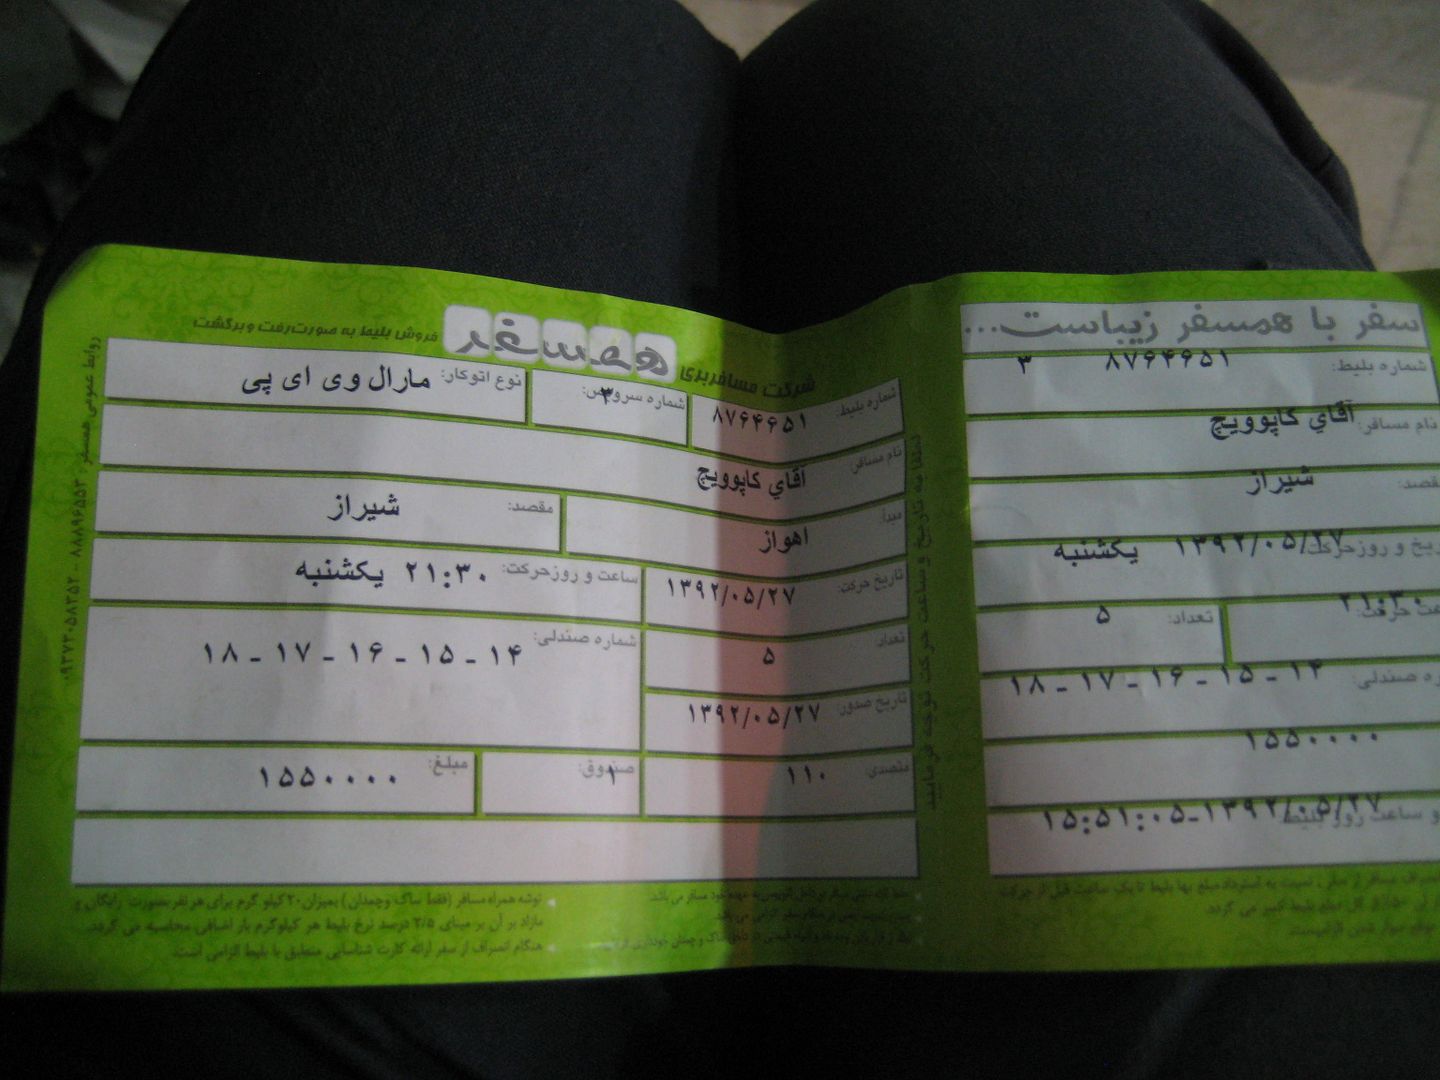 فروش بلیط به صورت رفت و برگشت
همسفر
شرکت مسافربری
شماره بلیط: ۸۷۶۴۶۵۱
شماره سرویس: ۳
نوع اتوکار: مارال وی ای پی
نام مسافر آقاي کاپوویچ
مبدا: اهواز
مقصد: شیراز
تاریخ حرکت: ۱۳۹۲/۰۵/۲۷
ساعت و روزحرکت: ۲۱:۳۰ یکشنبه
تعداد ۵
شماره صندلی: ۱۴ - ۱۵ - ۱۶ - ۱۷ - ۱۸
تاریخ صدور: ۱۳۹۲/۰۵/۲۷
متصدی: ۱۱۰
صندوق: ۱
مبلغ: ۱۵۵۰۰۰۰
توشه همراه مسافر (فقط ساک و چمدان) بمیزان ۲۰ کیلو گرم برای هر نفر بصورت رایگان و
مازاد بر آن بر مبنای ۲/۵ درصد نرخ بلیط هر کیلوگرم بار اضافی محاسبه می گردد.
هنگام انصراف از سفر ارائه کارت شناسایی منطبق با بلیط الزامی است.
لطفا به تاریخ و ساعت حرکت توجه فرمایید
روابط عمومی همسفر
سفر با همسفر زیباست...
شماره بلیط: ۸۷۶۴۶۵۱ ۳
نام مسافر: آقاي کاپوویچ
مقصد: شیراز
تاریخ و روز حرکت: ۱۳۹۲/۰۵/۲۷ یکشنبه
ساعت حرکت: ۲۱:۳۰
تعداد: ۵
شماره صندلی: ۱۴ - ۱۵ - ۱۶ - ۱۷ - ۱۸
۱۵۵۰۰۰۰
و ساعت روز بلیط ۱۵:۵۱:۰۵-۱۳۹۲/۰۵/۲۷